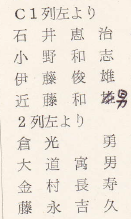 C1列左より
石井恵治
小野和志
伊藤俊雄
近藤和男
2列左より
倉光勇
大道寓男
金村長寿
藤永吉久